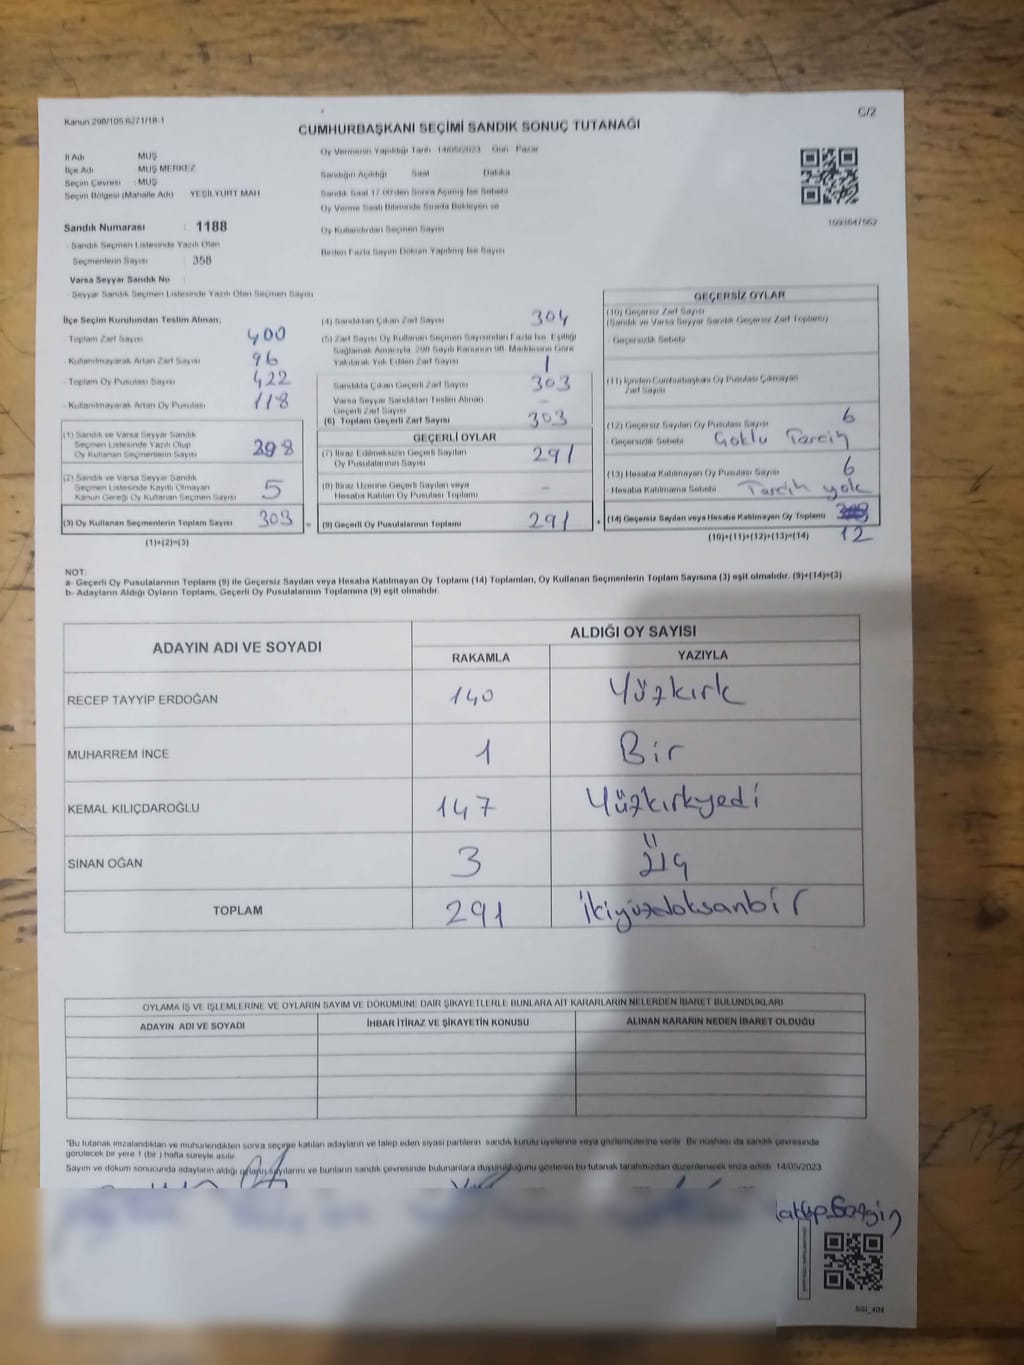 Kanun 298/105 6271/18-1
C/2
CUMHURBAŞKANI SEÇİMİ SANDIK SONUÇ TUTANAĞI
İl Adı MUŞ
İlçe Adı MUŞ MERKEZ
Seçim Çevresi : MUŞ
Seçim Bölgesi (Mahalle Adı) YEŞİLYURT MAH
Sandık Numarası : 1188
Sandık Seçmen Listesinde Yazılı Olan
Seçmenlerin Sayısı : 358
Varsa Seyyar Sandık No :
Seyyar Sandık Seçmen Listesinde Yazılı Olan Seçmen Sayısı
Oy Vermenin Yapıldığı Tarih 14/05/2023 Gün Pazar
Sandığın Açıldığı Saat Dakika
Sandık Saat 17 00'den Sonra Açılmış İse Sebebi
Oy Verme Saati Bitiminde Sırada Bekleyen ve
Oy Kullandırılan Seçmen Sayısı
Birden Fazla Sayım Döküm Yapılmış İse Sayısı
1093847562
İlçe Seçim Kurulundan Teslim Alınan;
Toplam Zarf Sayısı 400
Kullanılmayarak Artan Zarf Sayısı 96
Toplam Oy Pusulası Sayısı 422
Kullanılmayarak Artan Oy Pusulası 118
(1) Sandık ve Varsa Seyyar Sandık
Seçmen Listesinde Yazılı Olup
Oy Kullanan Seçmenlerin Sayısı 298
(2) Sandık ve Varsa Seyyar Sandık
Seçmen Listesinde Kayıtlı Olmayan
Kanun Gereği Oy Kullanan Seçmen Sayısı 5
(3) Oy Kullanan Seçmenlerin Toplam Sayısı 303 =
(1)+(2)=(3)
(4) Sandıktan Çıkan Zarf Sayısı 304
(5) Zarf Sayısı Oy Kullanan Seçmen Sayısından Fazla İse, Eşitliği
Sağlamak Amacıyla, 298 Sayılı Kanunun 98. Maddesine Göre
Yakılarak Yok Edilen Zarf Sayısı 1
Sandıkta Çıkan Geçerli Zarf Sayısı 303
Varsa Seyyar Sandıktan Teslim Alınan
Geçerli Zarf Sayısı -
(6) Toplam Geçerli Zarf Sayısı 303
GEÇERLİ OYLAR
(7) İtiraz Edilmeksizin Geçerli Sayılan
Oy Pusulalarının Sayısı 291
(8) İtiraz Üzerine Geçerli Sayılan veya
Hesaba Katılan Oy Pusulası Toplamı -
(9) Geçerli Oy Pusulalarının Toplamı 291 +
GEÇERSİZ OYLAR
(10) Geçersiz Zarf Sayısı
(Sandık ve Varsa Seyyar Sandık Geçersiz Zarf Toplamı)
Geçersizlik Sebebi
(11) İçinden Cumhurbaşkanı Oy Pusulası Çıkmayan
Zarf Sayısı
(12) Geçersiz Sayılan Oy Pusulası Sayısı 6
Geçersizlik Sebebi Çoklu Tercih
(13) Hesaba Katılmayan Oy Pusulası Sayısı 6
Hesaba Katılmama Sebebi Tercih yok
(14) Geçersiz Sayılan veya Hesaba Katılmayan Oy Toplamı
(10)+(11)+(12)+(13)=(14) 12
NOT:
a- Geçerli Oy Pusulalarının Toplamı (9) ile Geçersiz Sayılan veya Hesaba Katılmayan Oy Toplamı (14) Toplamları, Oy Kullanan Seçmenlerin Toplam Sayısına (3) eşit olmalıdır. (9)+(14)=(3)
b- Adayların Aldığı Oyların Toplamı, Geçerli Oy Pusulalarının Toplamına (9) eşit olmalıdır.
ADAYIN ADI VE SOYADI
ALDIĞI OY SAYISI
RAKAMLA YAZIYLA
RECEP TAYYİP ERDOĞAN 140 Yüzkırk
MUHARREM İNCE 1 Bir
KEMAL KILIÇDAROĞLU 147 Yüzkırkyedi
SİNAN OĞAN 3 Üç
TOPLAM 291 İkiyüzdoksanbir
OYLAMA İŞ VE İŞLEMLERİNE VE OYLARIN SAYIM VE DÖKÜMÜNE DAİR ŞİKAYETLERLE BUNLARA AİT KARARLARIN NELERDEN İBARET BULUNDUKLARI
ADAYIN ADI VE SOYADI İHBAR İTİRAZ VE ŞİKAYETİN KONUSU ALINAN KARARIN NEDEN İBARET OLDUĞU
*Bu tutanak imzalandıktan ve mühürlendikten sonra seçime katılan adayların ve talep eden siyasi partilerin sandık kurulu üyelerine veya gözlemcilerine verilir. Bir nüshası da sandık çevresinde
görülecek bir yere 1 (bir ) hafta süreyle asılır.
Sayım ve döküm sonucunda adayların aldığı oyların sayılarını ve bunların sandık çevresinde bulunanlara duyurulduğunu gösteren bu tutanak tarafımızdan düzenlenerek imza edildi. 14/05/2023
SSI_404